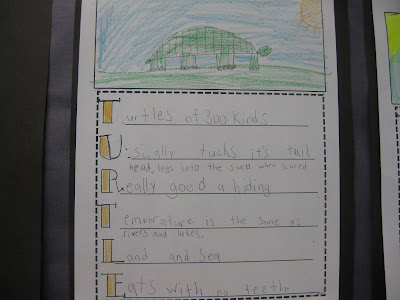 Turtles of 300 kinds
Usually tucks it's tail
head, legs into the shell when scared
Really good a hiding
Temperature is the same as
rivers and lakes.
Land and Sea
Eats with no teeth